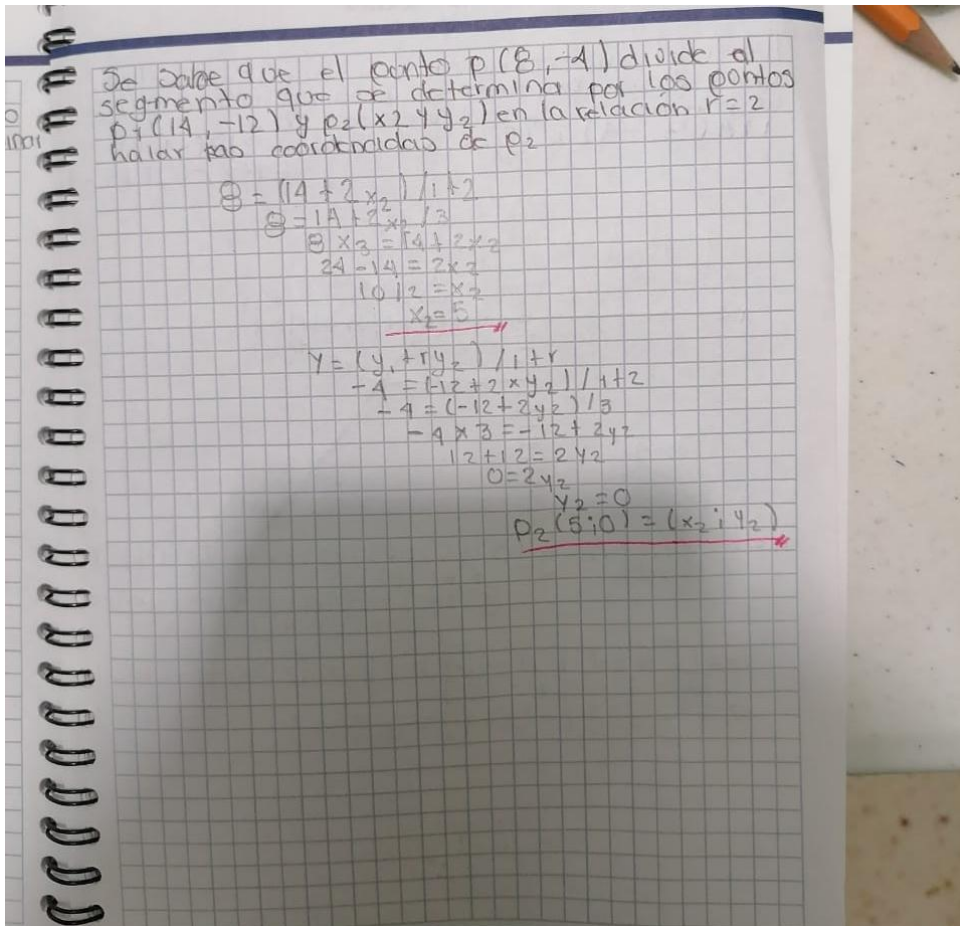 Se sabe que el punto p(8,-4) divide al
segmento que se determina por los puntos
p1(14,-12) y p2(x2 y y2) en la relacion r=2
halar las coordenadas de p2
8=(14+2x2)/1+2
8=14+2x2/3
8x3=14+2x2
24-14=2x2
10/2=x2
x2=5
y=(y1+ry2)/1+r
-4=(-12+2xy2)/1+2
-4=(-12+2y2)/3
-4x3=-12+2y2
12+12=2y2
0=2y2
y2=0
p2(5;0)=(x2;y2)